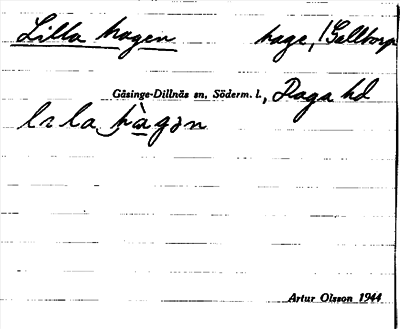 Lilla hagen hage, Gälltorp
Gåsinge-Dillnäs sn, Söderm. l., Daga hd
lɩla hàgən
Artur Olsson 1944